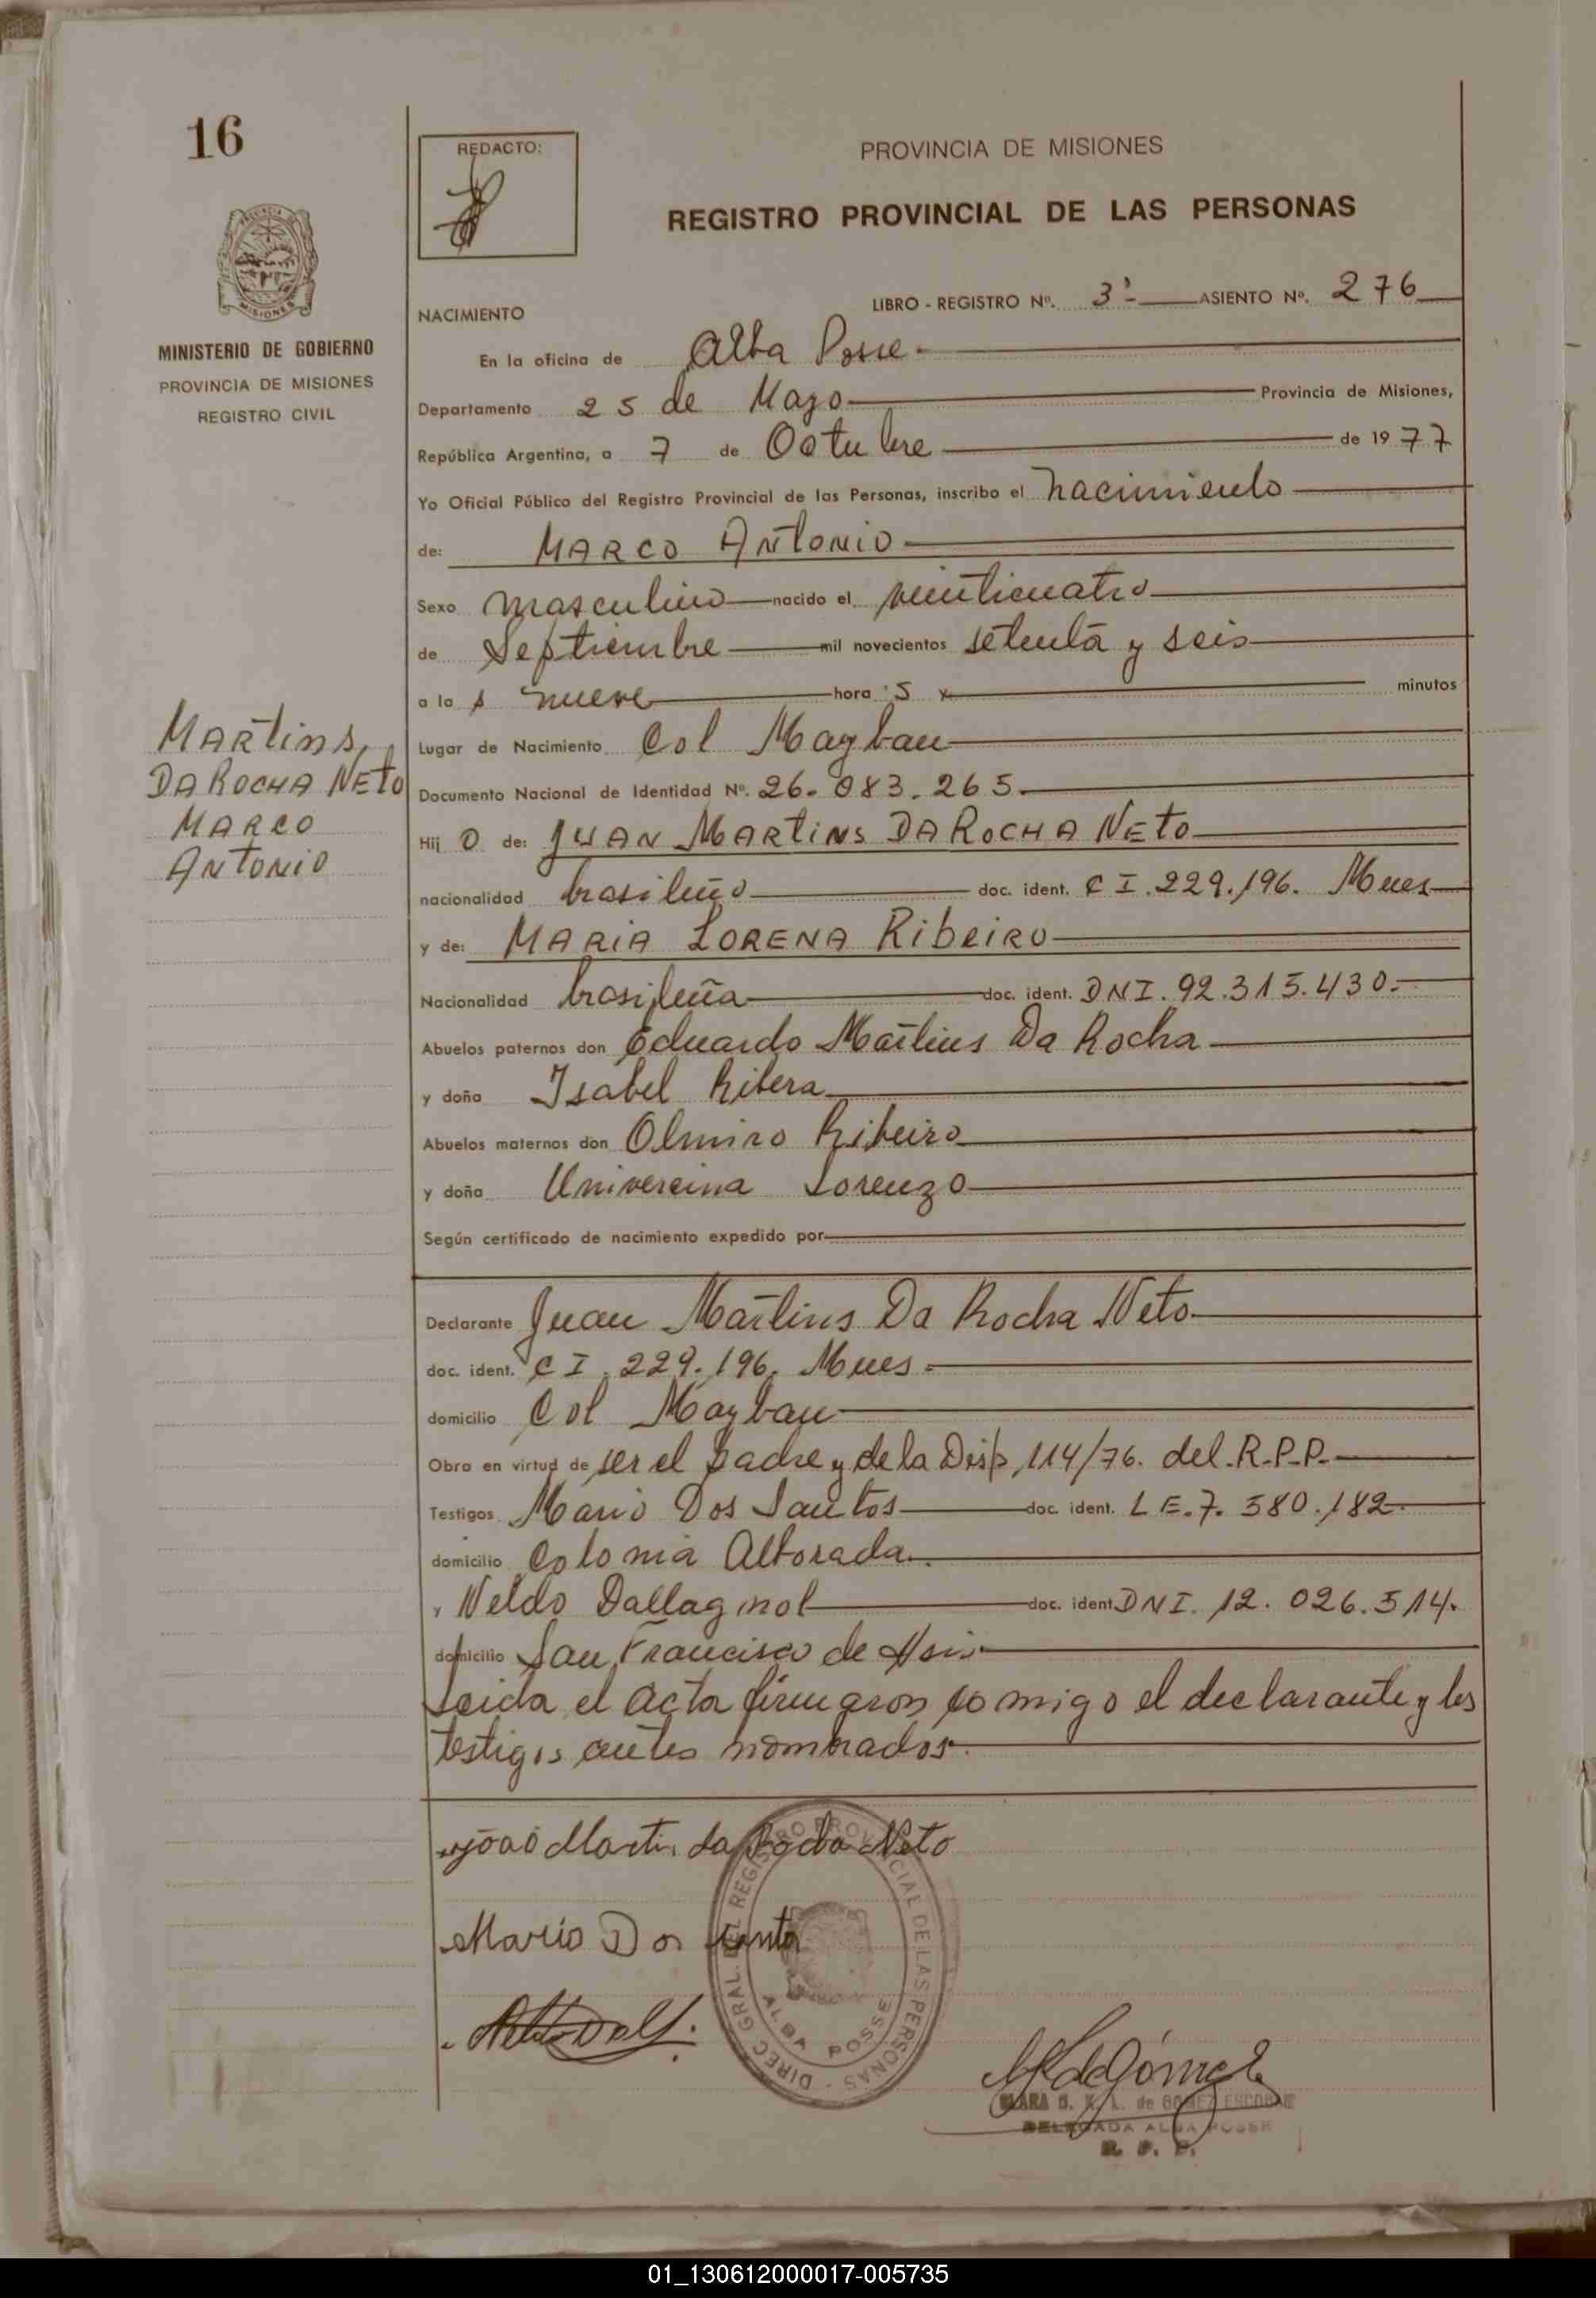 16
REDACTO:
PROVINCIA DE MISIONES
REGISTRO PROVINCIAL DE LAS PERSONAS
MISIONES
MINISTERIO DE GOBIERNO
PROVINCIA DE MISIONES
REGISTRO CIVIL
LIBRO - REGISTRO Nº. 3º- ASIENTO Nº. 276
NACIMIENTO
En la oficina de Alba Posse.
Departamento 25 de Mayo Provincia de Misiones,
República Argentina, a 7 de Octubre de 1977
Yo Oficial Público del Registro Provincial de las Personas, inscribo el nacimiento
de: MARCO ANTONIO
Sexo masculino nacido el veinticuatro
de Septiembre mil novecientos setenta y seis
a la s nueve hora s y minutos
Lugar de Nacimiento Col Maybau
Martins,
DA ROCHA NETO
MARCO
ANTONIO
Documento Nacional de Identidad Nº. 26.083.265.
Hij o de: JUAN MARTINS DA ROCHA NETO
nacionalidad brasileño doc. ident. C I. 229.196. Mnes
y de: MARIA LORENA RIBEIRO
Nacionalidad brasileña doc. ident. DNI. 92.315.430.-
Abuelos paternos don Eduardo Martins Da Rocha
y doña Isabel Ribera
Abuelos maternos don Olmiro Ribeiro
y doña Univercina Lorenzo
Según certificado de nacimiento expedido por
Declarante Juan Martins Da Rocha Neto
doc. ident. C I. 229.196. Mnes.
domicilio Col Maybau
Obra en virtud de ser el padre y de la Disp, 114/76. del R.P.P.
Testigos Mario Dos Santos doc. ident. L E. 7. 580.182.
domicilio Colonia Alborada.
y Neldo Dallagnol doc. ident. DNI. 12. 026.514.
domicilio San Francisco de Asis
Leida el acta firmaron comigo el declarante y los
testigos antes nombrados.
João Martin da Rocha Neto
Mario Dos Santos
DIREC. GRAL. DEL REGISTRO PROVINCIAL DE LAS PERSONAS
ALBA POSSE
de GOMEZ ESCOBAR
DELEGADA ALBA POSSE
R. P. P.
01_130612000017-005735